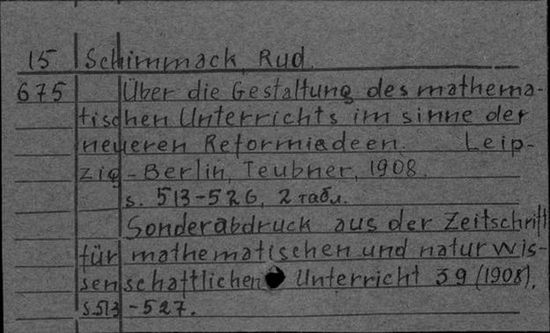 15 Schimmack, Rud.
675 Über die Gestaltung des mathema-
tischen Unterrichts im sinne der
neueren Reformiadeen. Leip-
zig-Berlin, Teubner, 1908.
s. 513-526, 2 табл.
Sonderabdruck aus der Zeitschrift
für mathematischen und naturwis-
senschaftlichen Unterricht 39 (1908),
s.513-527.